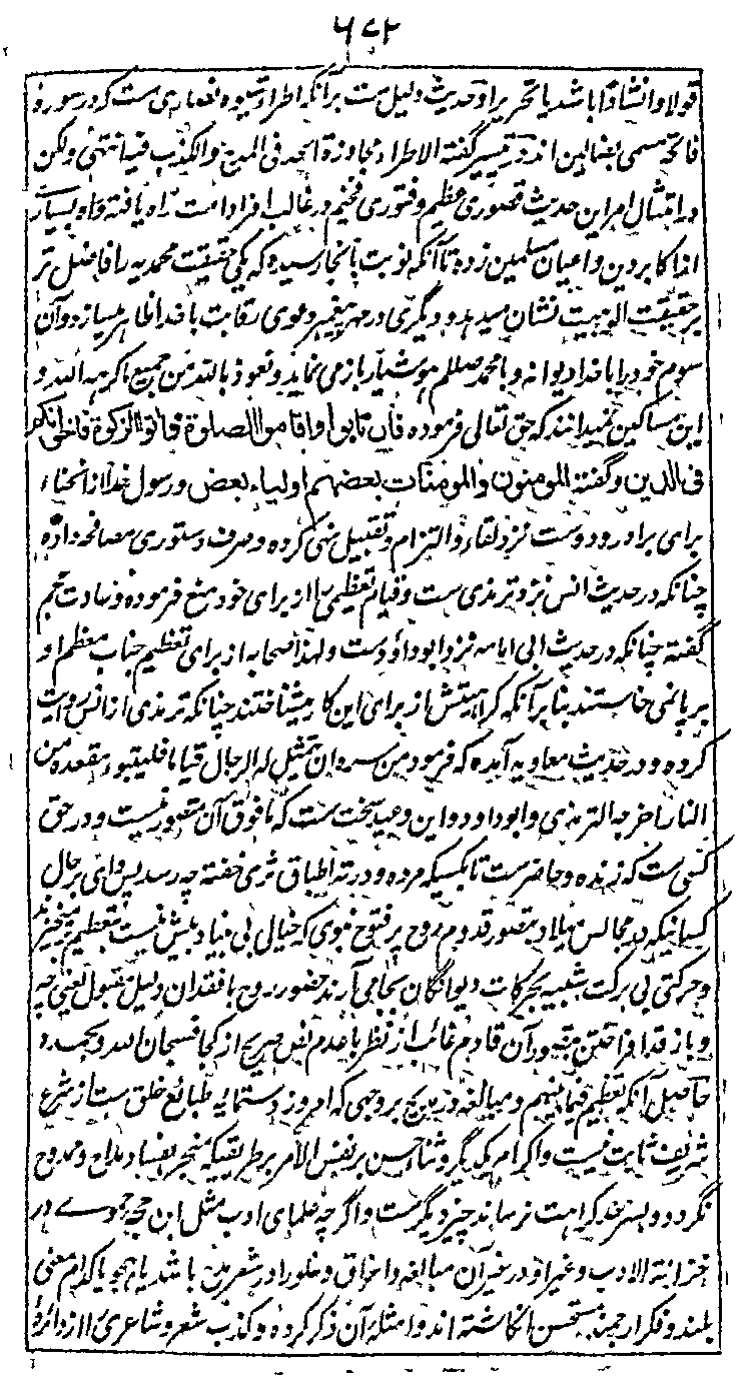 ۶۷۲
قولا و انشادا باشد یا تحریرا و حدیث دلیل ست برانکه اطرا و شیوه نصاری ست که در سوره
فاتحه مسمی بضالین اند در تیسیر گفته الاطراء مجاوزة الحد فی المدح و الکذب فیه انتهی ولکن
در امتثال امر این حدیث قصوری عظیم و فتوری فخیم در غالب افراد امت راه یافته و راه بسیاری
از اکابر دین و اعیان مسلمین زده تا آنکه نوبت بانجا رسیده که یکی حقیقت محمدیه را فاضل تر
بر حقیقت الوهیت نشان میدهد و دیگری در مهر پیغمبر دعوی رقابت با خدا ظاهر میسازد و آن
سوم خود را با خدا دیوانه و با محمد صللم هوشیار بازمی نماید و نعوذ بالله من جمیع ما کرهه الله و
این مساکین نمیدانند که حق تعالی فرموده فان تابوا واقاموا الصلوة واتوا الزکوة فاخوانکم
فی الدین و گفته المومنون والمومنات بعضهم اولیاء بعض و رسول خدا از انحناء
برای برادر و دوست نزد لقاء و التزام و تقبیل نهی کرده و صرف دستوری مصافحه داده
چنانکه در حدیث انس نزد ترمذی ست و قیام تعظیمی را از برای خود منع فرموده و عادت عجم
گفته چنانکه در حدیث ابی امامه نزد ابو داؤد ست و لهذا صحابه از برای تعظیم جناب معظم او
بر پا نمی خاستند بنا بر آنکه کراهیتش از برای این کار میشناختند چنانکه ترمذی از انس روایت
کرده و در حدیث معاویه آمده که فرمود من سره ان یتمثل له الرجال قیاما فلیتبوء مقعده من
النار اخرجه الترمذی و ابو داود و این وعید سخت ست که ما فوق آن متصور نیست و در حق
کسی ست که زنده و حاضر ست تا بکسیکه مرده و در ته اطباق ثری خفته چه رسد پس وای بر حال
کسانیکه در مجالس میلاد بتصور قدوم روح پر فتوح نبوی که خیال بی بنیاد بیش نیست بتعظیم میخیزند
و حرکتی بی برکت شبیه بحرکات دیوانگان بجا می آرند حضور روح با فقدان دلیل مقبول یعنی چه
و باز قد افراختن بتصور آن قادم غائب از نظر با عدم نص صریح از کجا فسبحان الله وبحمده
حاصل آنکه تعظیم فیما بینهم و مبالغه در مدح بر وجهی که امروز دستمایه طبائع خلق ست از شرع
شریف ثابت نیست و اکرام یکدیگر و ثناء حسن بر نفس الامر بر طریقیکه منجر بفساد مداح و ممدوح
نگردد و بسرحد کراهت نرساند چیز دیگرست و اگرچه علمای ادب مثل ابن حجه حموے در
خزانة الادب و غیر او در غیر آن مبالغه و اغراق و غلو را در شعر مدح باشد یا هجو یا کدام معنی
بلند و فکر ارجمند مستحسن انگاشته اند و امثله آن ذکر کرده و کذب شعر و شاعری را از دائرهٔ